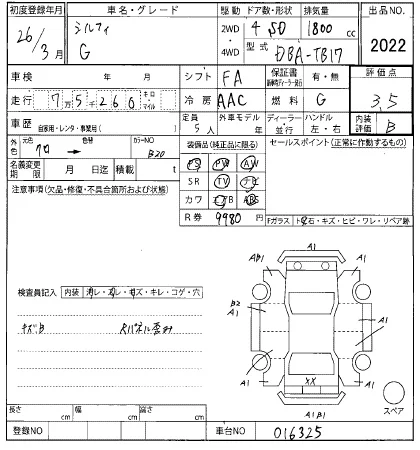 初度登録年月 車名・グレード 駆動 ドア数・形状 排気量 出品NO.
26/3月 シルフィ G 2WD 4WD 4 SD 1800 cc 2022
型式 DBA-TB17
車検 年 月 シフト FA 保証書 有・無 評価点
走行 7万5千260 キロ マイル 冷房 AAC 燃料 G 3.5
車歴 自家用・レンタ・事業用( ) 定員 5人 外車モデル 年 ディーラー 並行 ハンドル 左・右 内装評価 B
外色 元色 クロ 色替 カラーNO B20 装備品(純正品に限る) セールスポイント(正常に作動するもの)
PS PW AW
名義変更期限 月 日迄 積載 t SR TV ナビ
注意事項(欠品・修復・不具合箇所および状態) カワ エアB ABS
R券 9980円 Fガラス ト石・キズ・ヒビ・ワレ・リペア跡
A1
A1B1 A1
B2 A1 A1
検査員記入 内装 汚レ・スレ・キズ・キレ・コゲ・穴
キズ凹
A1 A1
XX
A1B1
スペア
長さ cm 幅 cm 高さ cm
登録NO 車台NO 016325